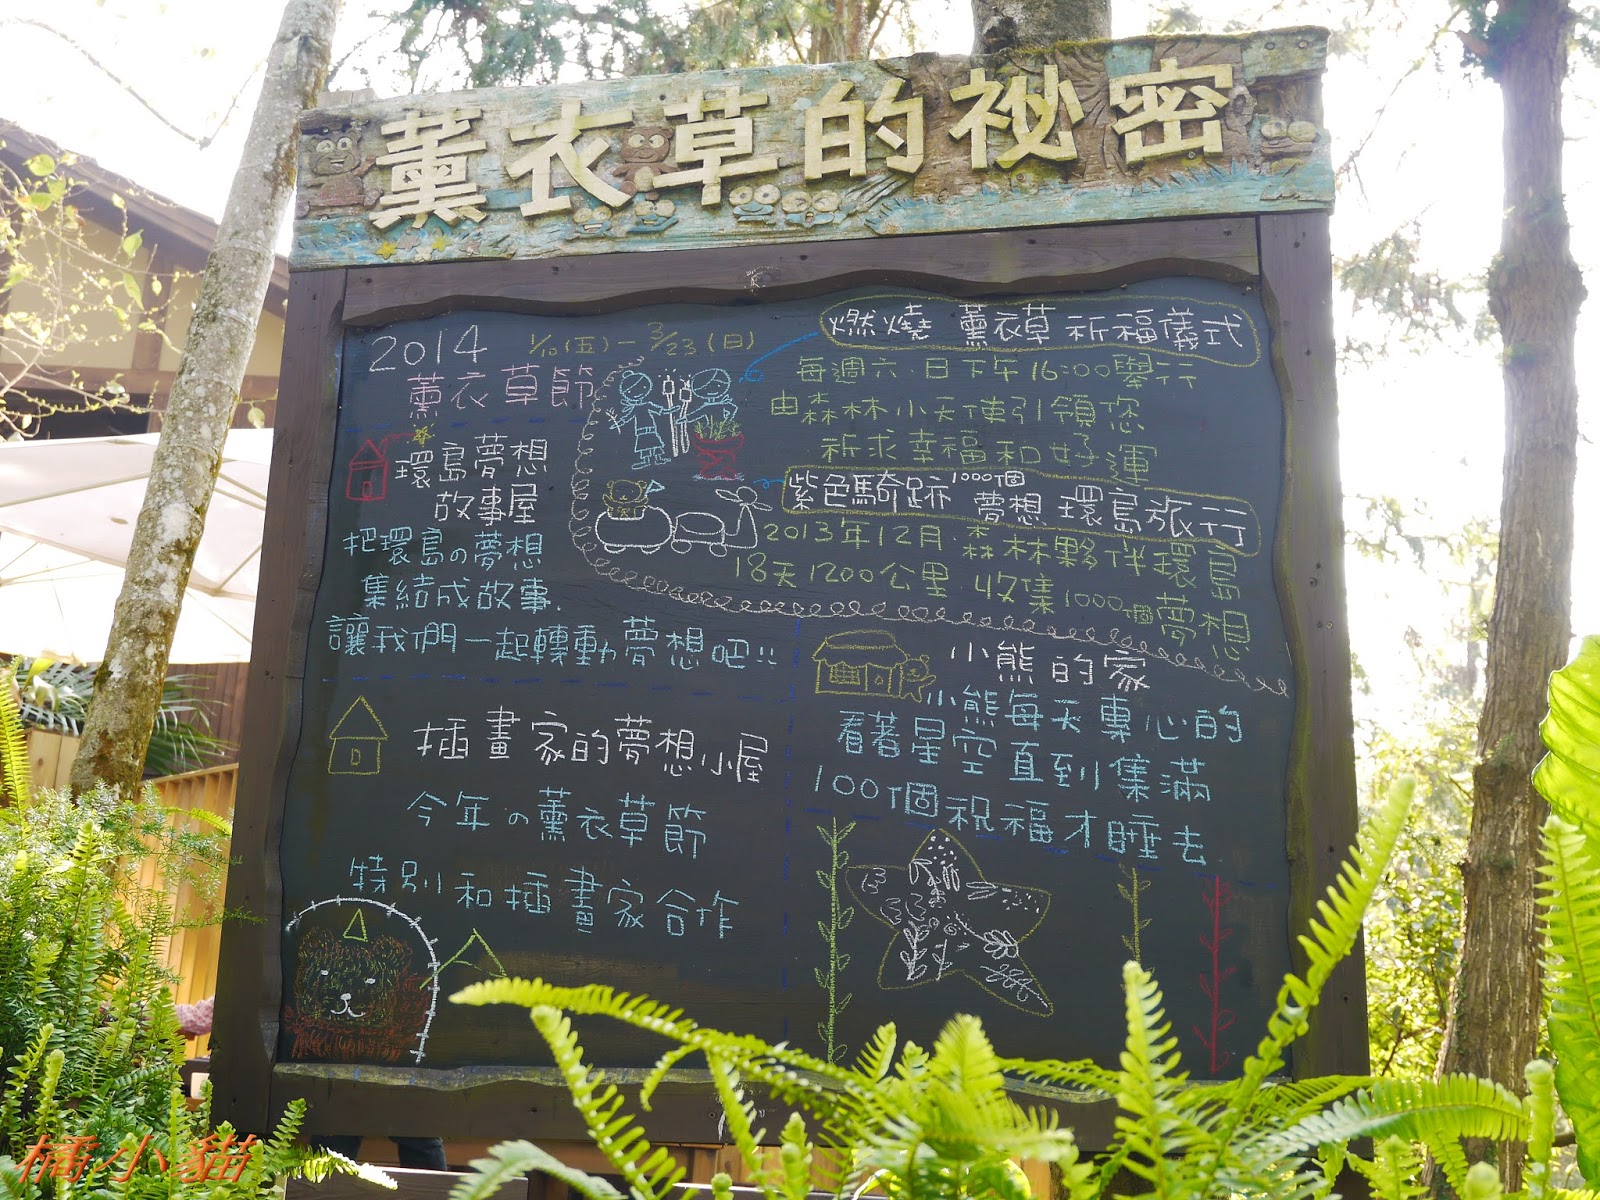 薰衣草的祕密
2014 1/10(五)－3/23(日)
薰衣草節
環島夢想
故事屋
把環島の夢想
集結成故事.
讓我們一起轉動夢想吧!!
燃燒 薰衣草 祈福儀式
每週六.日下午16:00舉行
由森林小天使引領您
祈求幸福和好運
紫色騎跡 1000個夢想 環島旅行
2013年12月.森林夥伴環島
18天1200公里 收集1000個夢想
插畫家的夢想小屋
今年の薰衣草節
特別和插畫家合作
小熊的家
小熊每天專心的
看著星空直到集滿
100個祝福才睡去
橘小貓